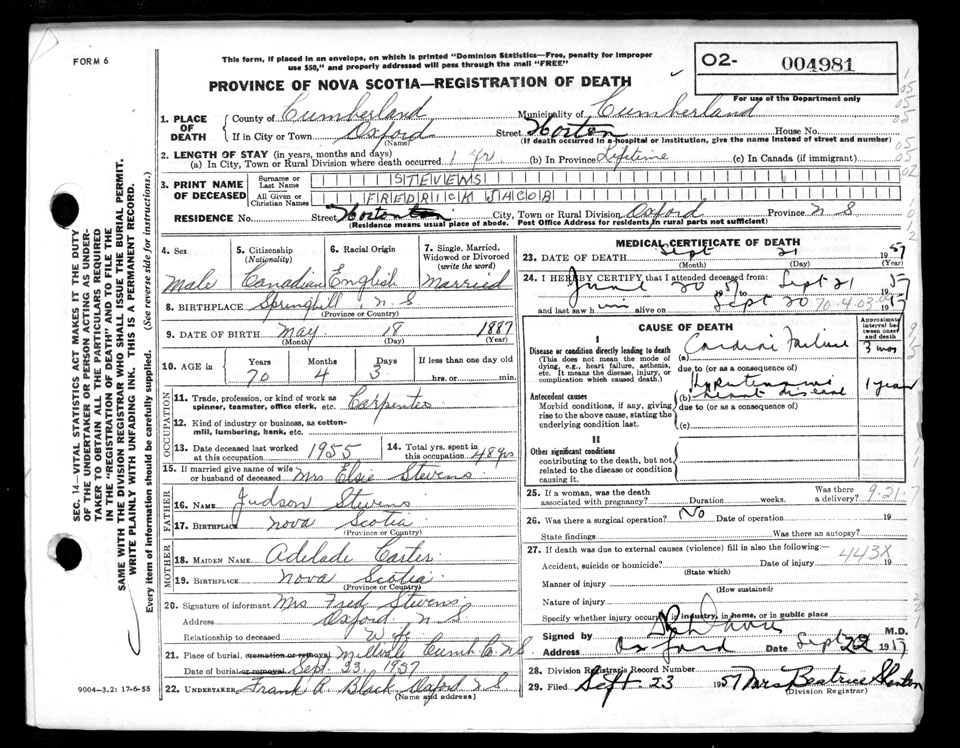 FORM 6
This form, if placed in an envelope, on which is printed "Dominion Statistics—Free, penalty for improper
use $50," and properly addressed will pass through the mail "FREE"
PROVINCE OF NOVA SCOTIA—REGISTRATION OF DEATH
O2- 004981
For use of the Department only
1. PLACE OF DEATH County of Cumberland Municipality of Cumberland
If in City or Town Oxford Street Horton House No.
(Name) (If death occurred in a hospital or institution, give the name instead of street and number)
2. LENGTH OF STAY (in years, months and days)
(a) In City, Town or Rural Division where death occurred 1 yr. (b) In Province Lifetime (c) In Canada (if immigrant)
3. PRINT NAME OF DECEASED Surname or Last Name STEVENS
All Given or Christian Names FREDRICK JACOB
RESIDENCE No. Street City, Town or Rural Division Oxford Province N S
(Residence means usual place of abode. Post Office Address for Residents in rural parts not sufficient)
4. Sex 5. Citizenship (Nationality) 6. Racial Origin 7. Single, Married, Widowed or Divorced (write the word)
Male Canadian English Married
8. BIRTHPLACE Springhill N.S
(Province or Country)
9. DATE OF BIRTH May 18 1887
(Month) (Day) (Year)
10. AGE in Years Months Days If less than one day old
70 4 3 hrs. or min.
OCCUPATION
11. Trade, profession, or kind of work as
spinner, teamster, office clerk, etc. Carpenter
12. Kind of industry or business, as cotton-
mill, lumbering, bank, etc.
13. Date deceased last worked at this occupation 1955 14. Total yrs. spent in this occupation 48 yrs
15. If married give name of wife or husband of deceased Mrs Elsie Stevens
FATHER
16. NAME Judson Stevens
17. BIRTHPLACE Nova Scotia
(Province or Country)
MOTHER
18. MAIDEN NAME Adelade Carter
19. BIRTHPLACE Nova Scotia
(Province or Country)
20. Signature of informant Mrs Fred Stevens
Address Oxford N.S
Relationship to deceased Wife
21. Place of burial, cremation or removal Millvale Cumb Co. N S
Date of burial or removal Sept. 23, 1957
22. UNDERTAKER Frank R. Black Oxford N.S
(Name and address)
9004-3.2: 17-6-55
MEDICAL CERTIFICATE OF DEATH
23. DATE OF DEATH Sept 21 1957
(Month) (Day) (Year)
24. I HEREBY CERTIFY that I attended deceased from:
June 20 1957 Sept 21 1957
and last saw him alive on Sept 20 1957
70-4-03.0
CAUSE OF DEATH
Approximate interval between onset and death
I
Disease or condition directly leading to death (a) Cardiac Failure 3 mos
(This does not mean the mode of
dying, e.g., heart failure, asthenia,
etc. It means the disease, injury, or
complication which caused death.)
due to (or as a consequence of)
Antecedent causes (b) Hypertensive heart disease 1 year
Morbid conditions, if any, giving
rise to the above cause, stating the
underlying condition last.
due to (or as a consequence of)
(c)
II
Other significant conditions
contributing to the death, but not
related to the disease or condition
causing it.
25. If a woman, was the death associated with pregnancy? Duration weeks. Was there a delivery?
9-21-7
26. Was there a surgical operation? No Date of operation 19
State findings Was there an autopsy?
27. If death was due to external causes (violence) fill in also the following:—
443X
Accident, suicide or homicide? Date of injury 19
(State which)
Manner of injury
(How sustained)
Nature of injury
Specify whether injury occurred in industry, in home, or in public place
Signed by M.D.
Address Oxford Date Sept 22 1957
28. Division Registrar's Record Number
29. Filed Sept. 23 1957 Mrs Beatrice
(Division Registrar)
SEC. 14—VITAL STATISTICS ACT MAKES IT THE DUTY
OF THE UNDERTAKER OR PERSON ACTING AS UNDER-
TAKER TO OBTAIN ALL THE PARTICULARS REQUIRED
IN THE "REGISTRATION OF DEATH" AND TO FILE THE
SAME WITH THE DIVISION REGISTRAR WHO SHALL ISSUE THE BURIAL PERMIT.
WRITE PLAINLY WITH UNFADING INK. THIS IS A PERMANENT RECORD.
Every item of information should be carefully supplied. (See reverse side for instructions.)